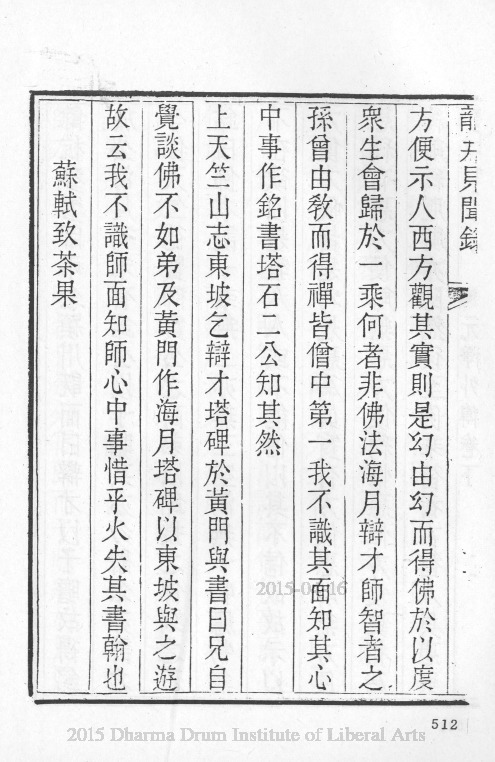 龍井見聞錄
方便示人西方觀其實則是幻由幻而得佛於以度
衆生會歸於一乘何者非佛法海月辯才師智者之
孫曾由敎而得禪皆僧中第一我不識其面知其心
中事作銘書塔石二公知其然
上天竺山志東坡乞辯才塔碑於黃門與書曰兄自
覺談佛不如弟及黃門作海月塔碑以東坡與之遊
故云我不識師面知師心中事惜乎火失其書翰也
蘇軾致茶果
2015-04-16
512
2015 Dharma Drum Institute of Liberal Arts